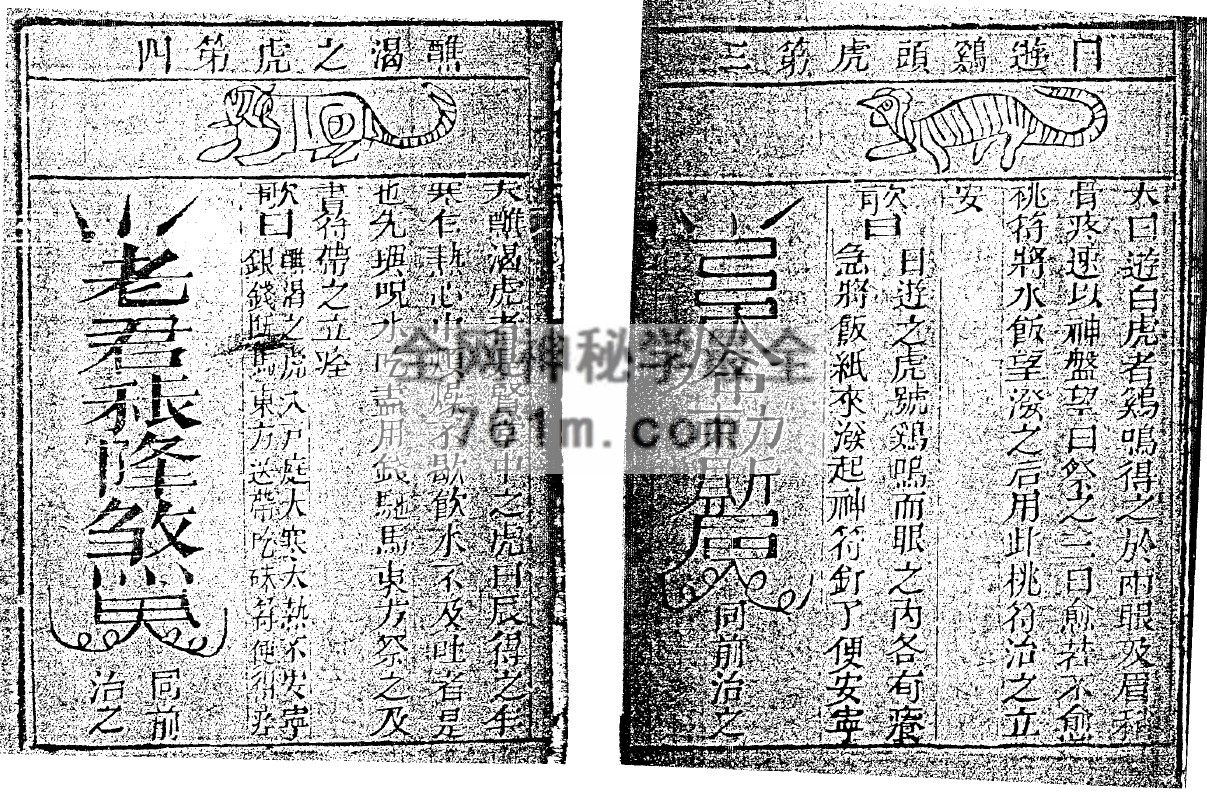 日遊鷄頭虎第三
夫日遊白虎者鷄鳴得之於兩眼及眉
骨疼速以神盤望日祭之三日愈若不愈
桃符將水飯望潑之后用此桃符治之立
安
歌曰
日遊之虎號鷄鳴而眼之內各有
急將飯紙來潑起神符釘了便安寧
斬
同前治之
醮渴之虎第四
夫醮渴虎者 之虎曰辰得之
寒有熱心 不歇飲水不及吐者是
也先 呪水吃 用錢馳馬東方祭之及
書符帶之立痊
歌曰
醮渴之虎入戶庭大寒大熱不安寧
銀錢 馬東方送帶吃硃符便得痊
老君 隆煞
同前
治之
全网神秘学 全
761m.com